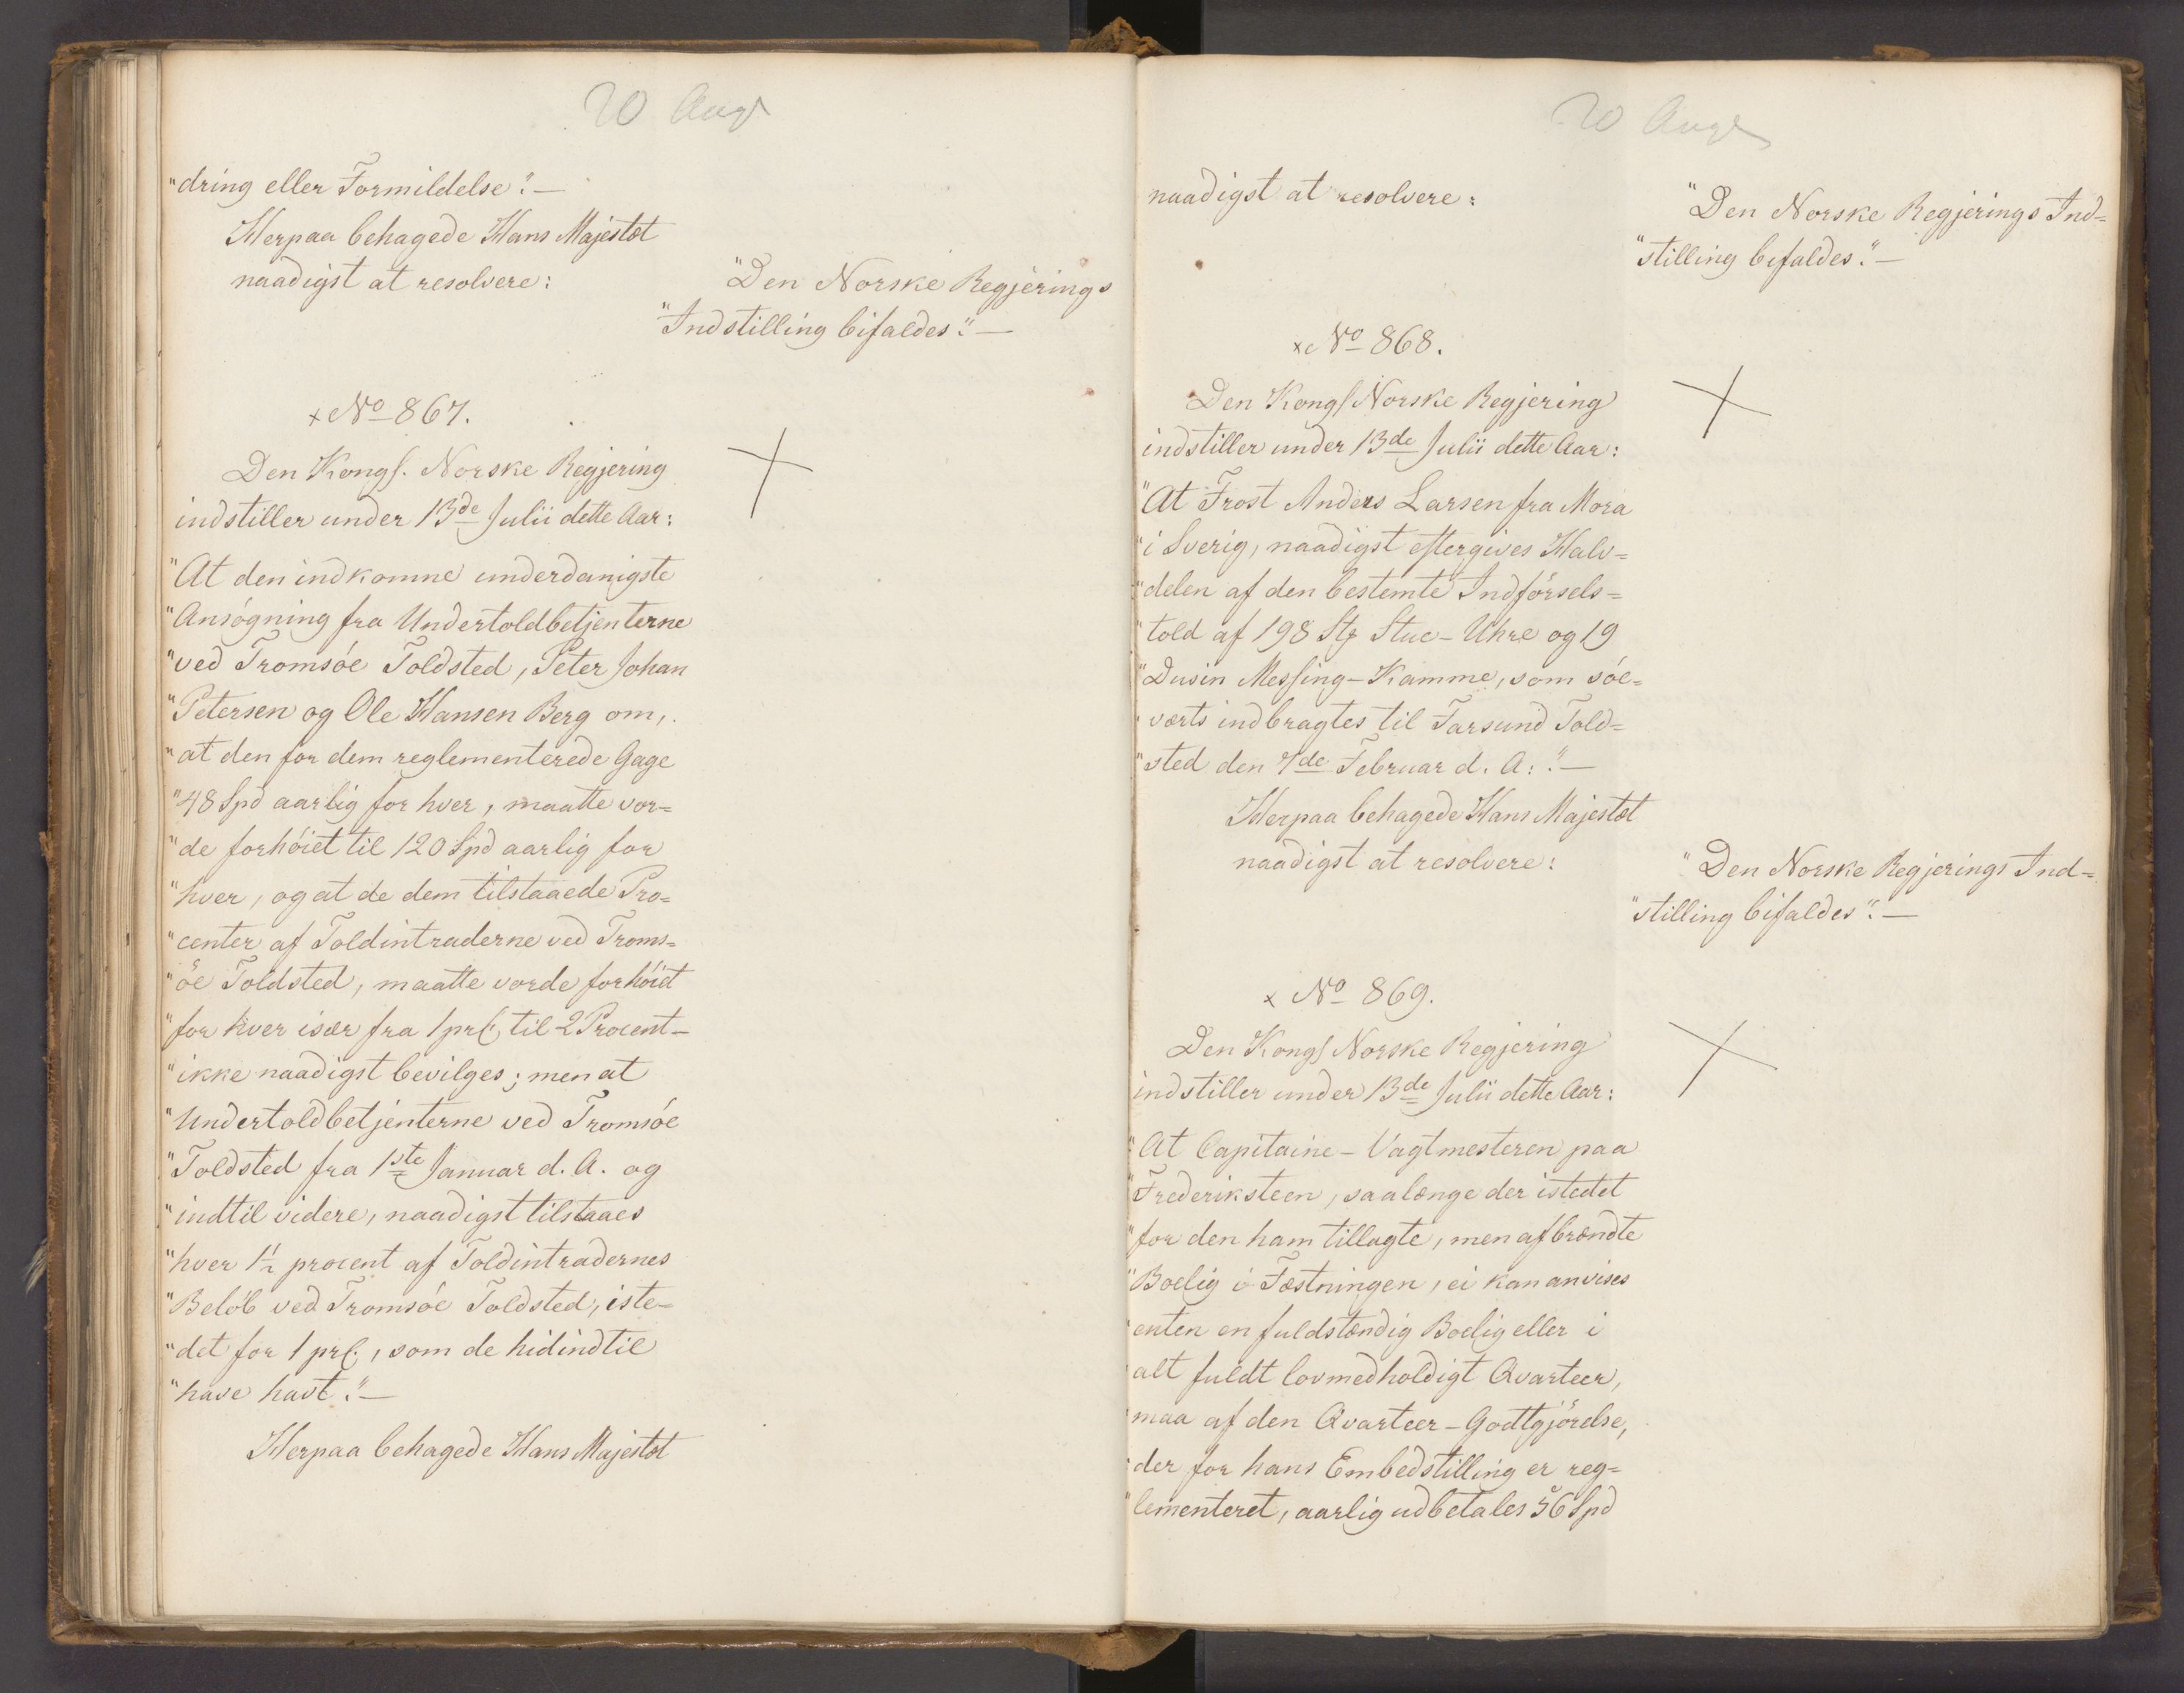 20 Aug
"dring eller Formildelse." —
Herpaa behagede Hans Majestæt
naadigst at resolvere:
"Den Norske Regjerings
"Indstilling bifaldes." —
x No 867.
Den Kongl. Norske Regjering
indstiller under 13de Julii dette Aar:
"At den indkomne underdanigste
"Ansøgning fra Undertoldbetjenterne
"ved Tromsöe Toldsted, Peter Johan
"Petersen og Ole Hansen Berg om,
"at den for dem reglementerede Gage
"48 Spd aarlig for hver, maatte vor=
"de forhöiet til 120 Spd aarlig for
"hver, og at de dem tilstaaede Pro=
"center af Toldintraderne ved Troms=
"öe Toldsted, maatte vorde forhöiet
"for hver især fra 1 prC. til 2 Procent —
"ikke naadigst bevilges; men at
"Undertoldbetjenterne ved Tromsöe
"Toldsted fra 1ste Januar d. A. og
"indtil videre, naadigst tilstaaes
"hver 1½ procent af Toldintradernes
"Belöb ved Tromsöe Toldsted, iste=
"det for 1 prC., som de hidindtil
"have havt." —
Herpaa behagede Hans Majestæt
20 Aug
naadigst at resolvere:
"Den Norske Regjerings Ind=
"stilling bifaldes." —
x No 868.
Den Kongl Norske Regjering
indstiller under 13de Julii dette Aar:
"At Frost Anders Larsen fra Mora
"i Sverig, naadigst eftergives Halv=
"delen af den bestemte Indförsels=
"told af 198 Stz Stue-Uhre og 19
"Dusin Messing-Kamme, som söe=
"værts indbragtes til Farsund Told=
"sted den 7de Februar d. A:" —
Herpaa behagede Hans Majestæt
naadigst at resolvere:
"Den Norske Regjerings Ind=
"stilling bifaldes". —
x No 869.
Den Kongl Norske Regjering
indstiller under 13de Julii dette Aar:
"At Capitaine-Vagtmesteren paa
"Frederiksteen, saalænge der istedet
"for den ham tillagte, men afbrændte
"Boelig i Fæstningen, ei kan anvises
"enten en fuldstændig Boelig eller i
"alt fuldt lovmedholdigt Qvarteer,
"maa af den Qvarteer-Godtgjörelse,
"der for hans Embedstilling er reg=
"lementeret, aarlig udbetales 56 Spd